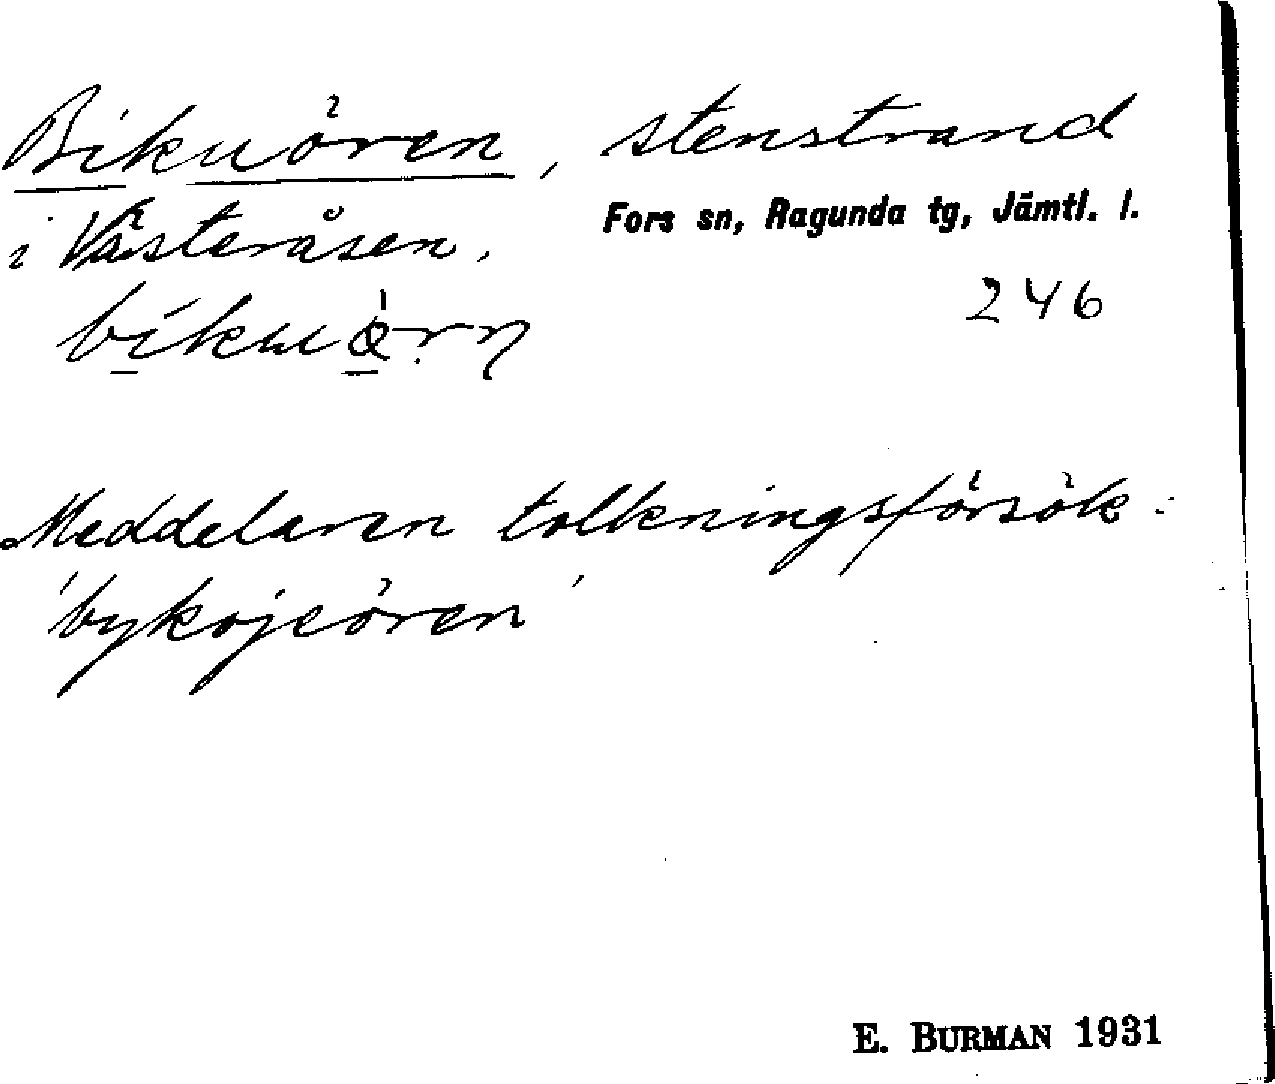 Bikuören, stenstrand
i Västeråsen,
Fors sn, Ragunda tg, Jämtl. l.
246
Meddelaren tolkningsförsök:
'bykojeören'
E. BURMAN 1931